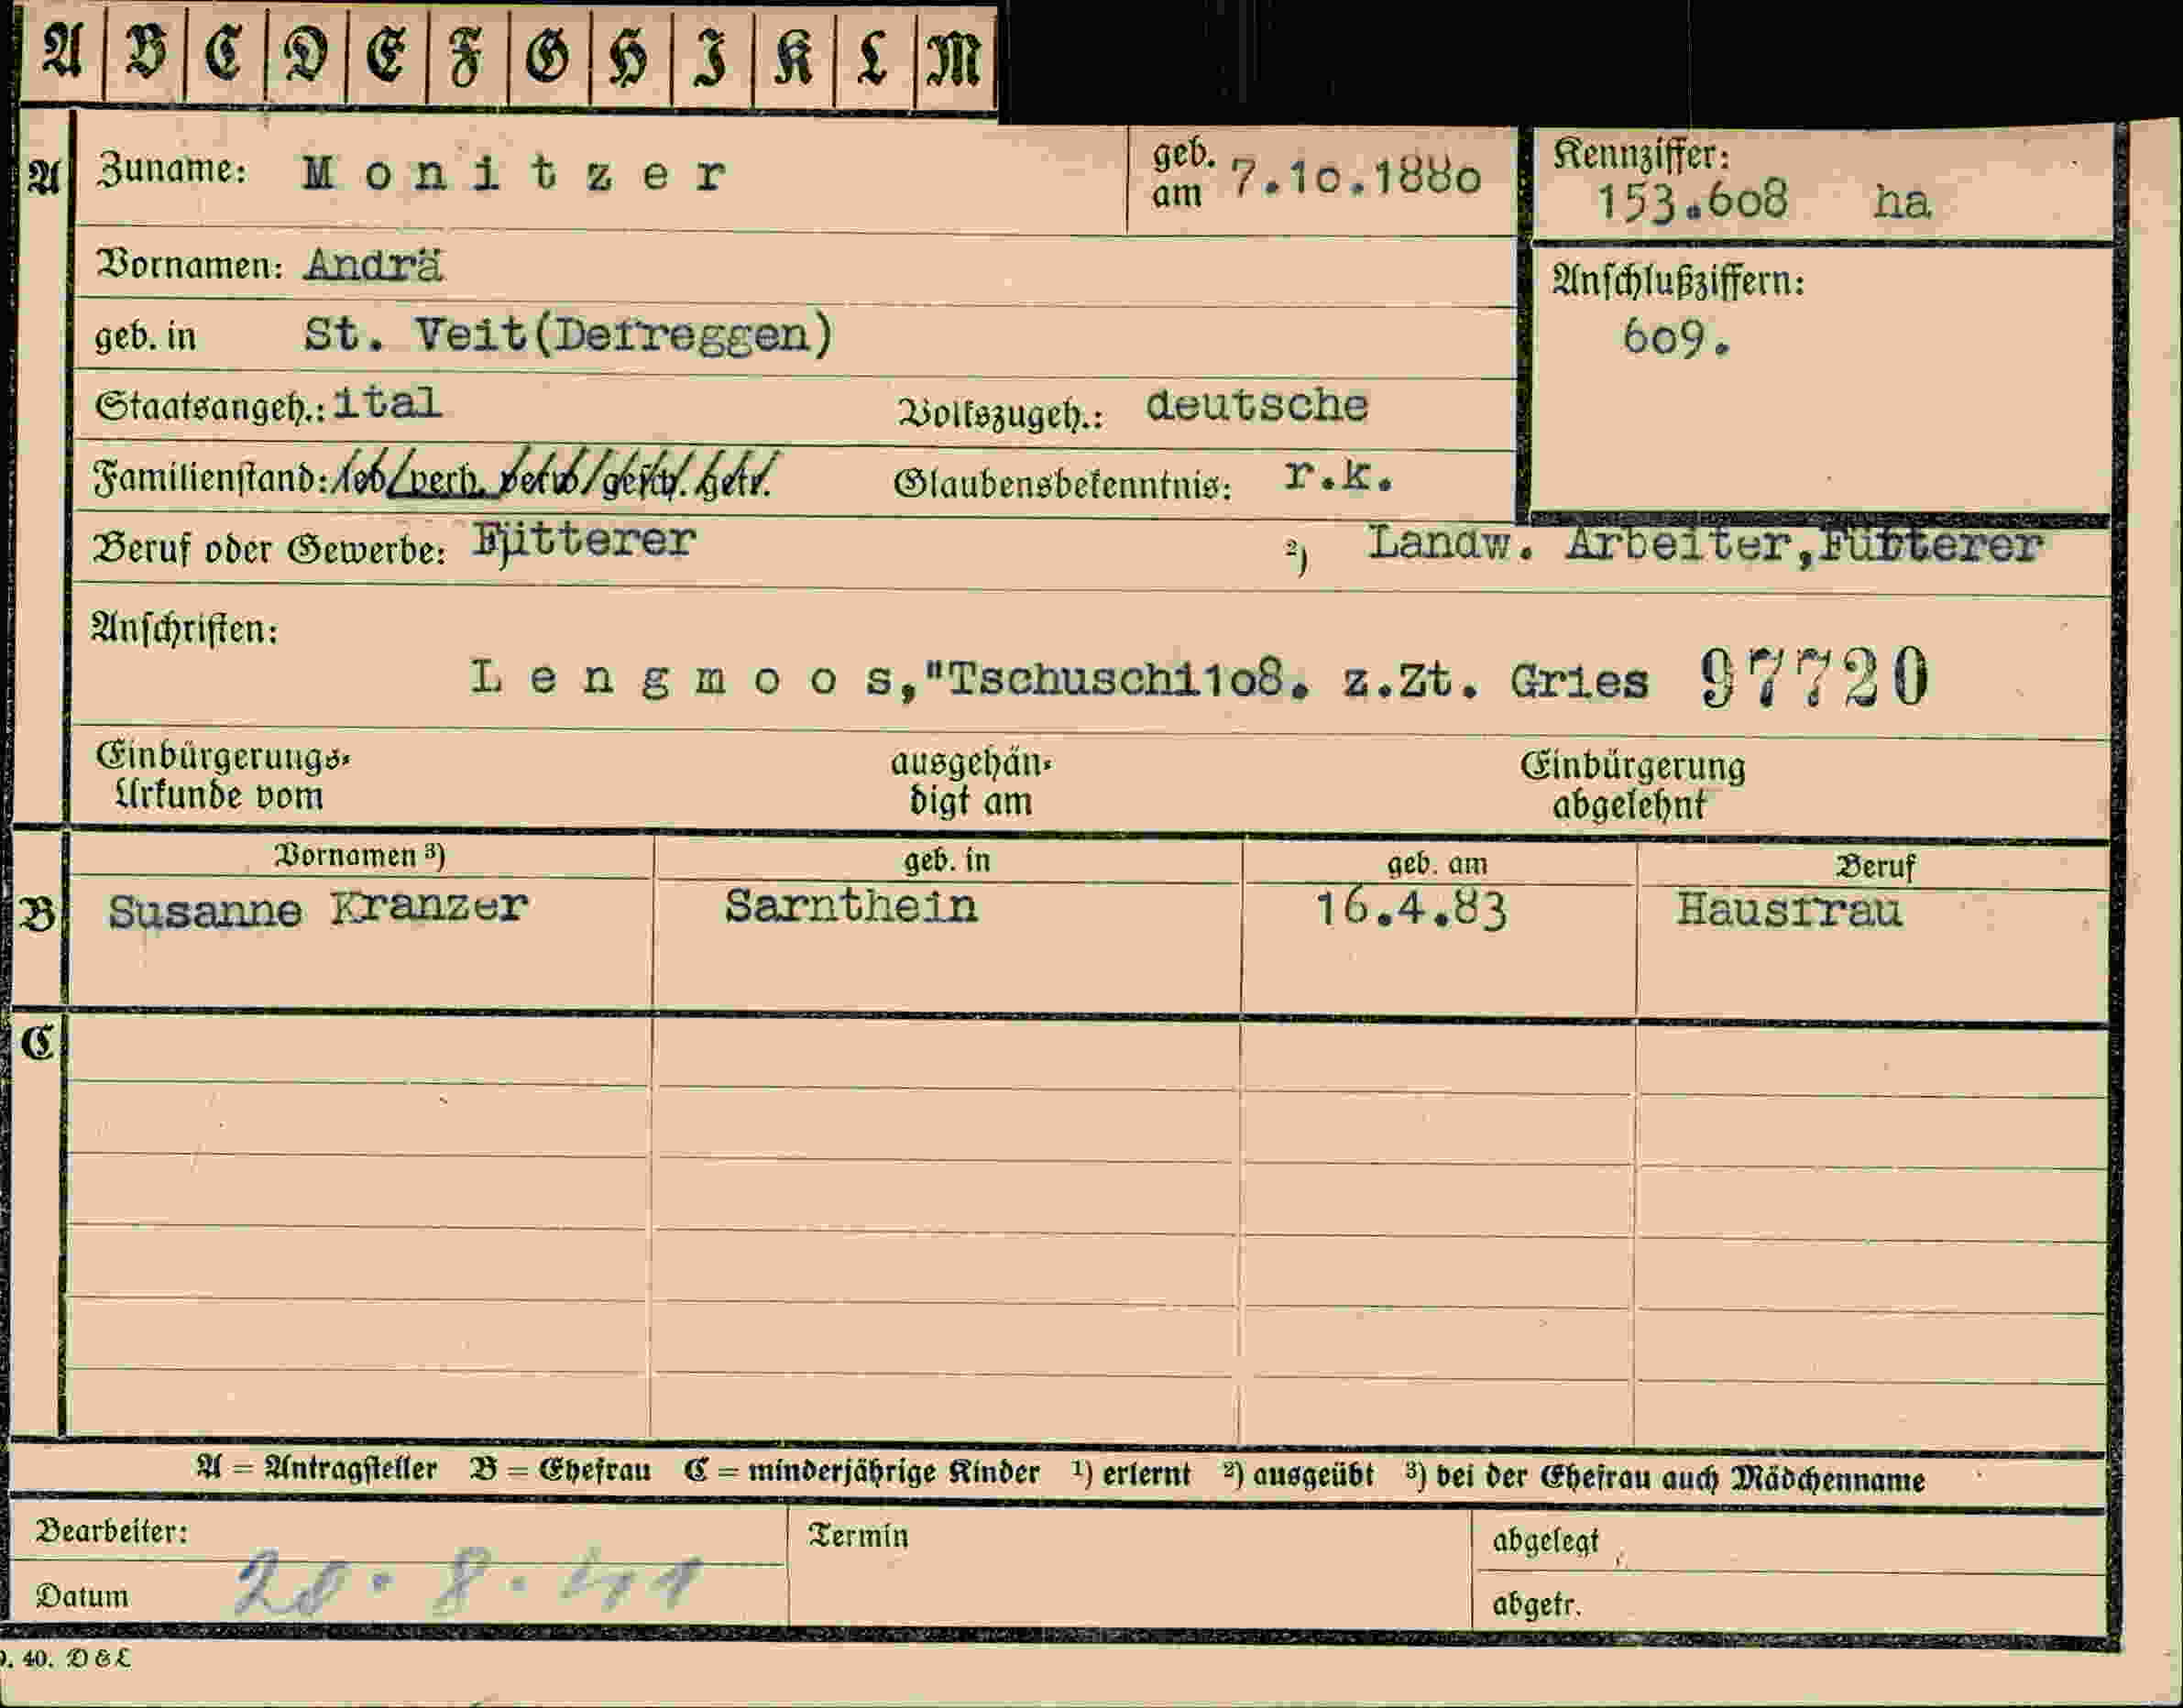 A B C D E F G H I K L M
A Zuname: Monitzer geb. am 7.10.1880 Kennziffer: 153.608 ha
Vornamen: Andrä Anschlußziffern:
geb. in St. Veit(Defreggen) 609.
Staatsangeh.: ital Volkszugeh.: deutsche
Familienstand: led/verh. verw/gesch. getr. Glaubensbekenntnis: r.k.
Beruf oder Gewerbe: Fütterer ²) Landw. Arbeiter,Fütterer
Anschriften:
Lengmoos,"Tschuschi108. z.Zt. Gries 97720
Einbürgerungs- ausgehän- Einbürgerung
Urkunde vom digt am abgelehnt
Vornamen ³) geb. in geb. am Beruf
B Susanne Kranzer Sarnthein 16.4.83 Hausfrau
C
A = Antragsteller B = Ehefrau C = minderjährige Kinder ¹) erlernt ²) ausgeübt ³) bei der Ehefrau auch Mädchenname
Bearbeiter: Termin abgelegt
Datum 28.8.41 abgetr.
40. D & L